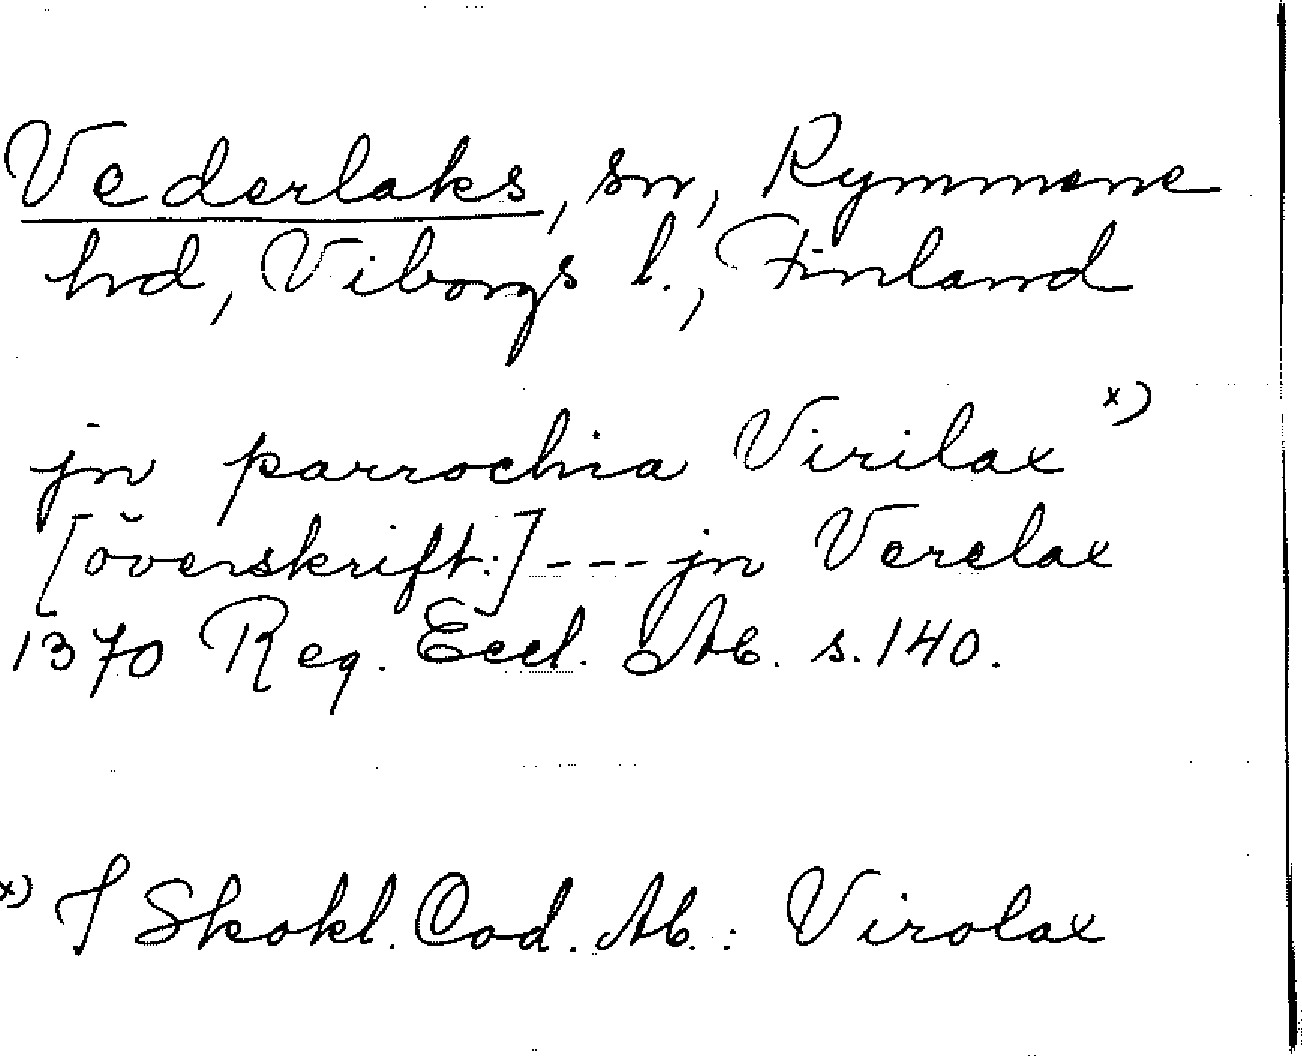 Vederlaks, sn, Kymmene
hd, Viborgs l., Finland
jn parrochia Virilax x)
[överskrift:] --- jn Verelax
1370 Reg. Eccl. Ab. s. 140.
x) I Skokl. Cod. Ab.: Virolax